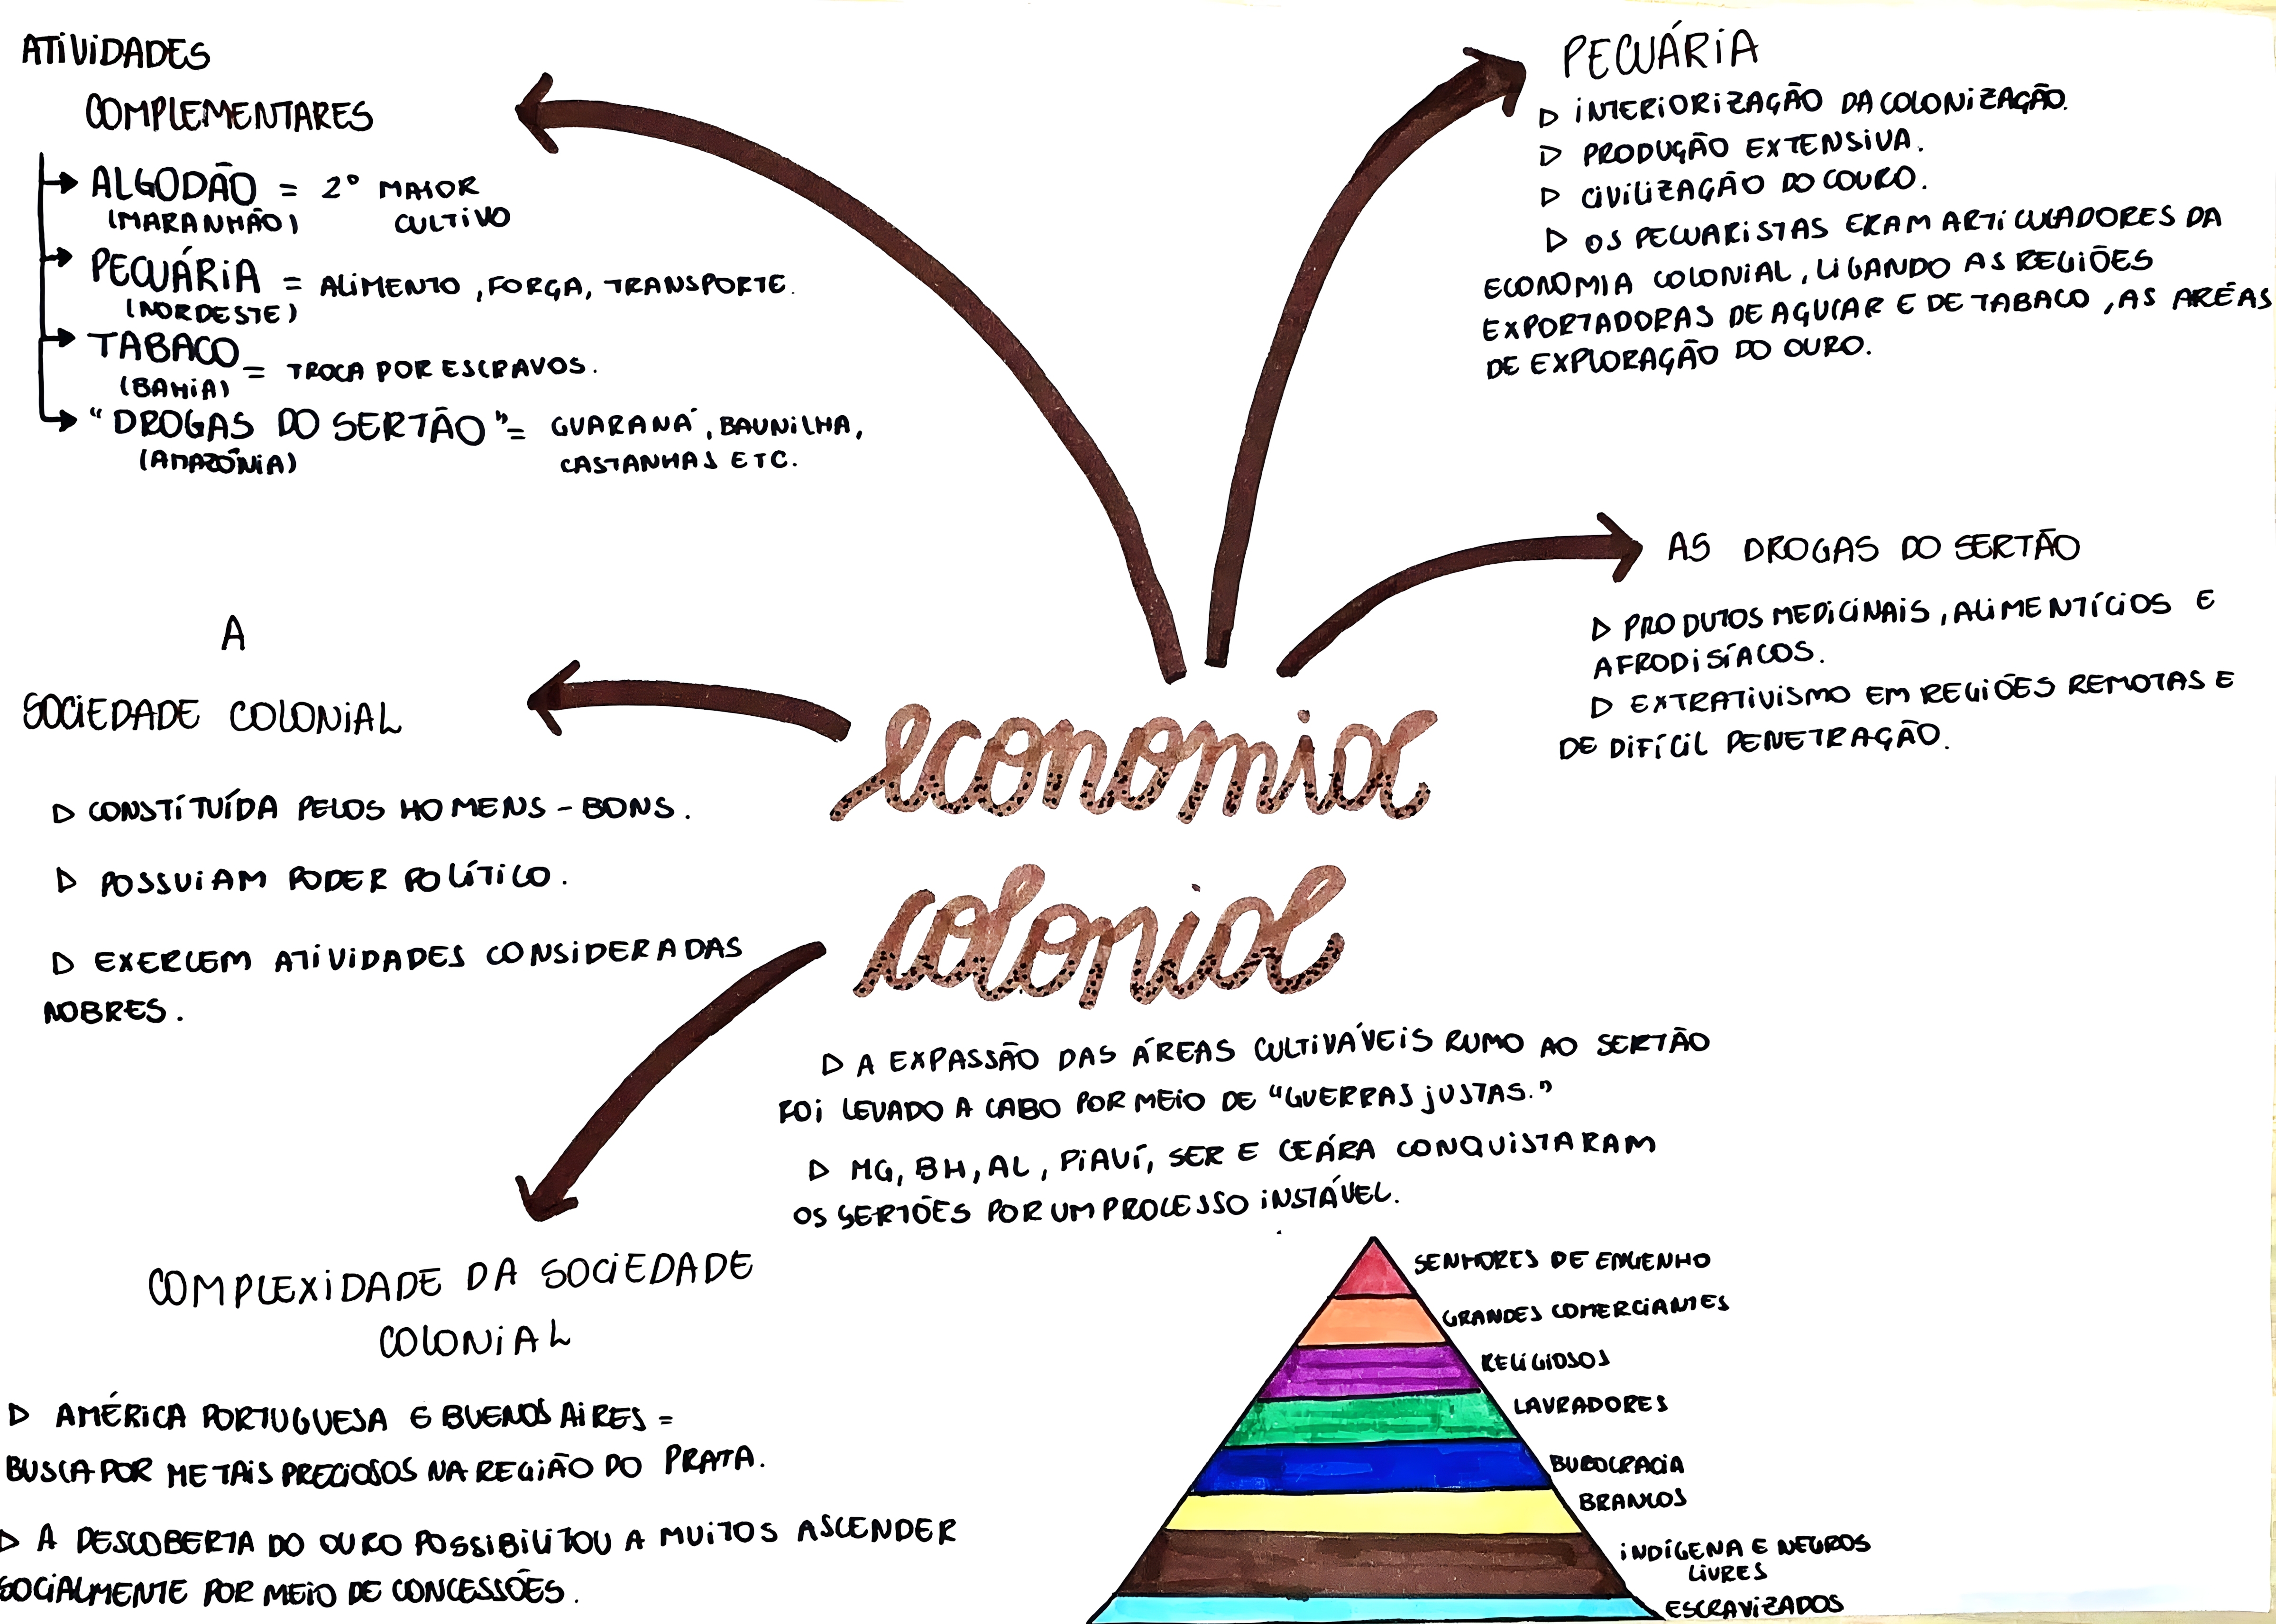 ATIVIDADES
COMPLEMENTARES
ALGODÃO = 2º MAIOR
(MARANHÃO) CULTIVO
PECUÁRIA = ALIMENTO, FORÇA, TRANSPORTE.
(NORDESTE)
TABACO = TROCA POR ESCRAVOS.
(BAHIA)
"DROGAS DO SERTÃO" = GUARANÁ, BAUNILHA,
(AMAZÔNIA) CASTANHAS ETC.
PECUÁRIA
▷ INTERIORIZAÇÃO DA COLONIZAÇÃO.
▷ PRODUÇÃO EXTENSIVA.
▷ CIVILIZAÇÃO DO COURO.
▷ OS PECUARISTAS ERAM ARTICULADORES DA
ECONOMIA COLONIAL, LIGANDO AS REGIÕES
EXPORTADORAS DE AÇUCAR E DE TABACO, AS ARÉAS
DE EXPLORAÇÃO DO OURO.
AS DROGAS DO SERTÃO
▷ PRODUTOS MEDICINAIS, ALIMENTÍCIOS E
AFRODISÍACOS.
▷ EXTRATIVISMO EM REGIÕES REMOTAS E
DE DIFÍCIL PENETRAÇÃO.
A
SOCIEDADE COLONIAL
▷ CONSTÍTUÍDA PELOS HOMENS-BONS.
▷ POSSUIAM PODER POLÍTICO.
▷ EXERCEM ATIVIDADES CONSIDERADAS
NOBRES.
economia
colonial
▷ A EXPASSÃO DAS ÁREAS CULTIVÁVEIS RUMO AO SERTÃO
FOI LEVADO A CABO POR MEIO DE "GUERRAS JUSTAS."
▷ MG, BH, AL, PIAUÍ, SER E CEÁRA CONQUISTARAM
OS SERTÕES POR UM PROCESSO INSTÁVEL.
COMPLEXIDADE DA SOCIEDADE
COLONIAL
▷ AMÉRICA PORTUGUESA E BUENOS AIRES =
BUSCA POR METAIS PRECIOSOS NA REGIÃO DO PRATA.
▷ A DESCOBERTA DO OURO POSSIBILITOU A MUITOS ASCENDER
SOCIALMENTE POR MEIO DE CONCESSÕES.
SENHORES DE ENGENHO
GRANDES COMERCIANTES
RELIGIOSOS
LAVRADORES
BUROCRACIA
BRANCOS
INDÍGENA E NEGROS
LIVRES
ESCRAVIZADOS